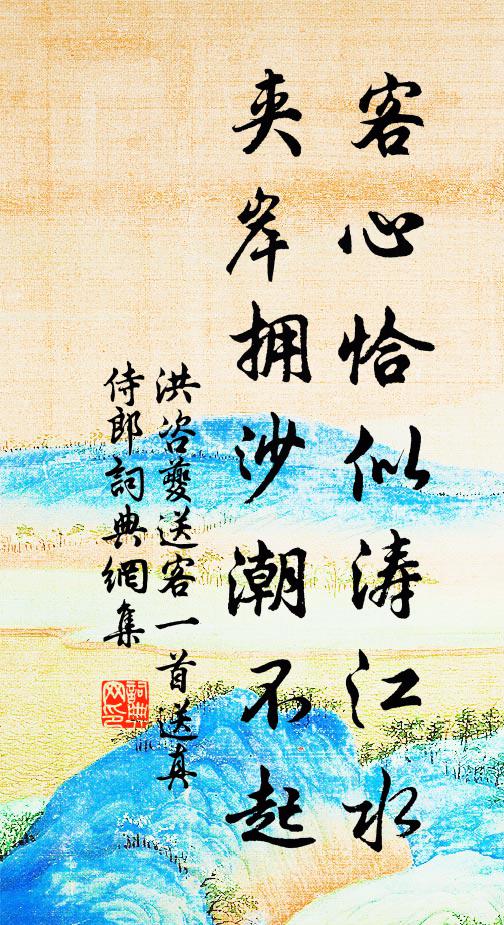 客心恰似涛江水
夹岸拥沙潮不起
洪咨夔送客一首送真
侍郎詞典網集
詞典